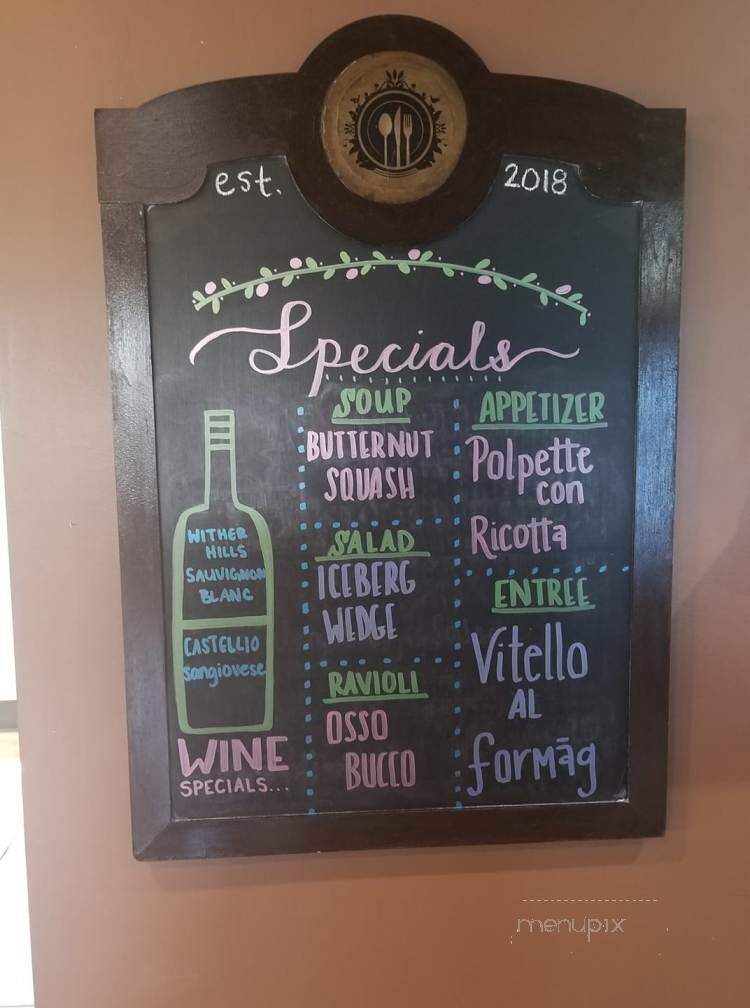 est. 2018
Specials
WITHER
HILLS
SAUVIGNON
BLANC
CASTELLIO
sangiovese
WINE
SPECIALS...
SOUP
BUTTERNUT
SQUASH
SALAD
ICEBERG
WEDGE
RAVIOLI
OSSO
BUCCO
APPETIZER
Polpette
con
Ricotta
ENTREE
Vitello
AL
formāg
menupix